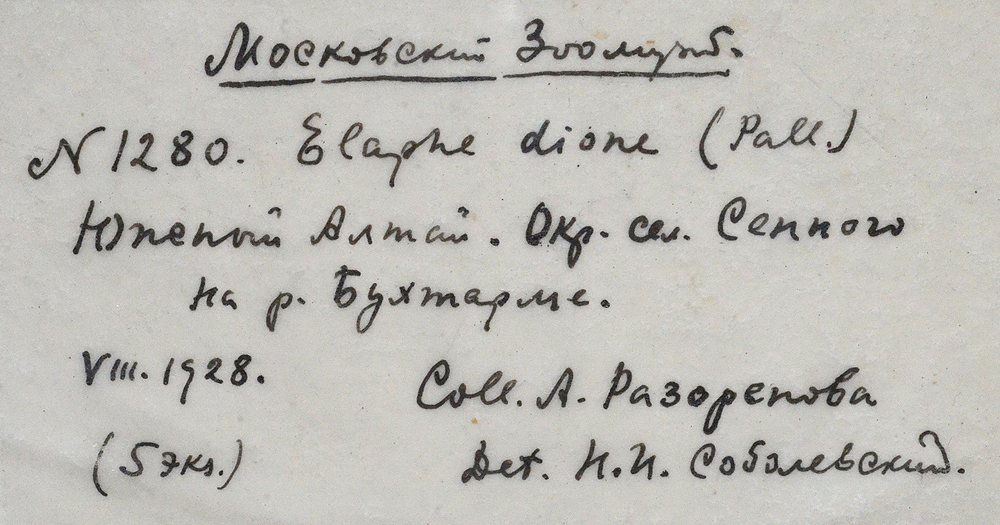 Московский Зоомуз.
N 1280. Elaphe dione (Pall.)
Южный Алтай. Окр. сел. Сенного
на р. Бухтарме.
VIII. 1928.
Coll. А. Разоренова
(5 экз.)
Det. Н.И. Соболевский.